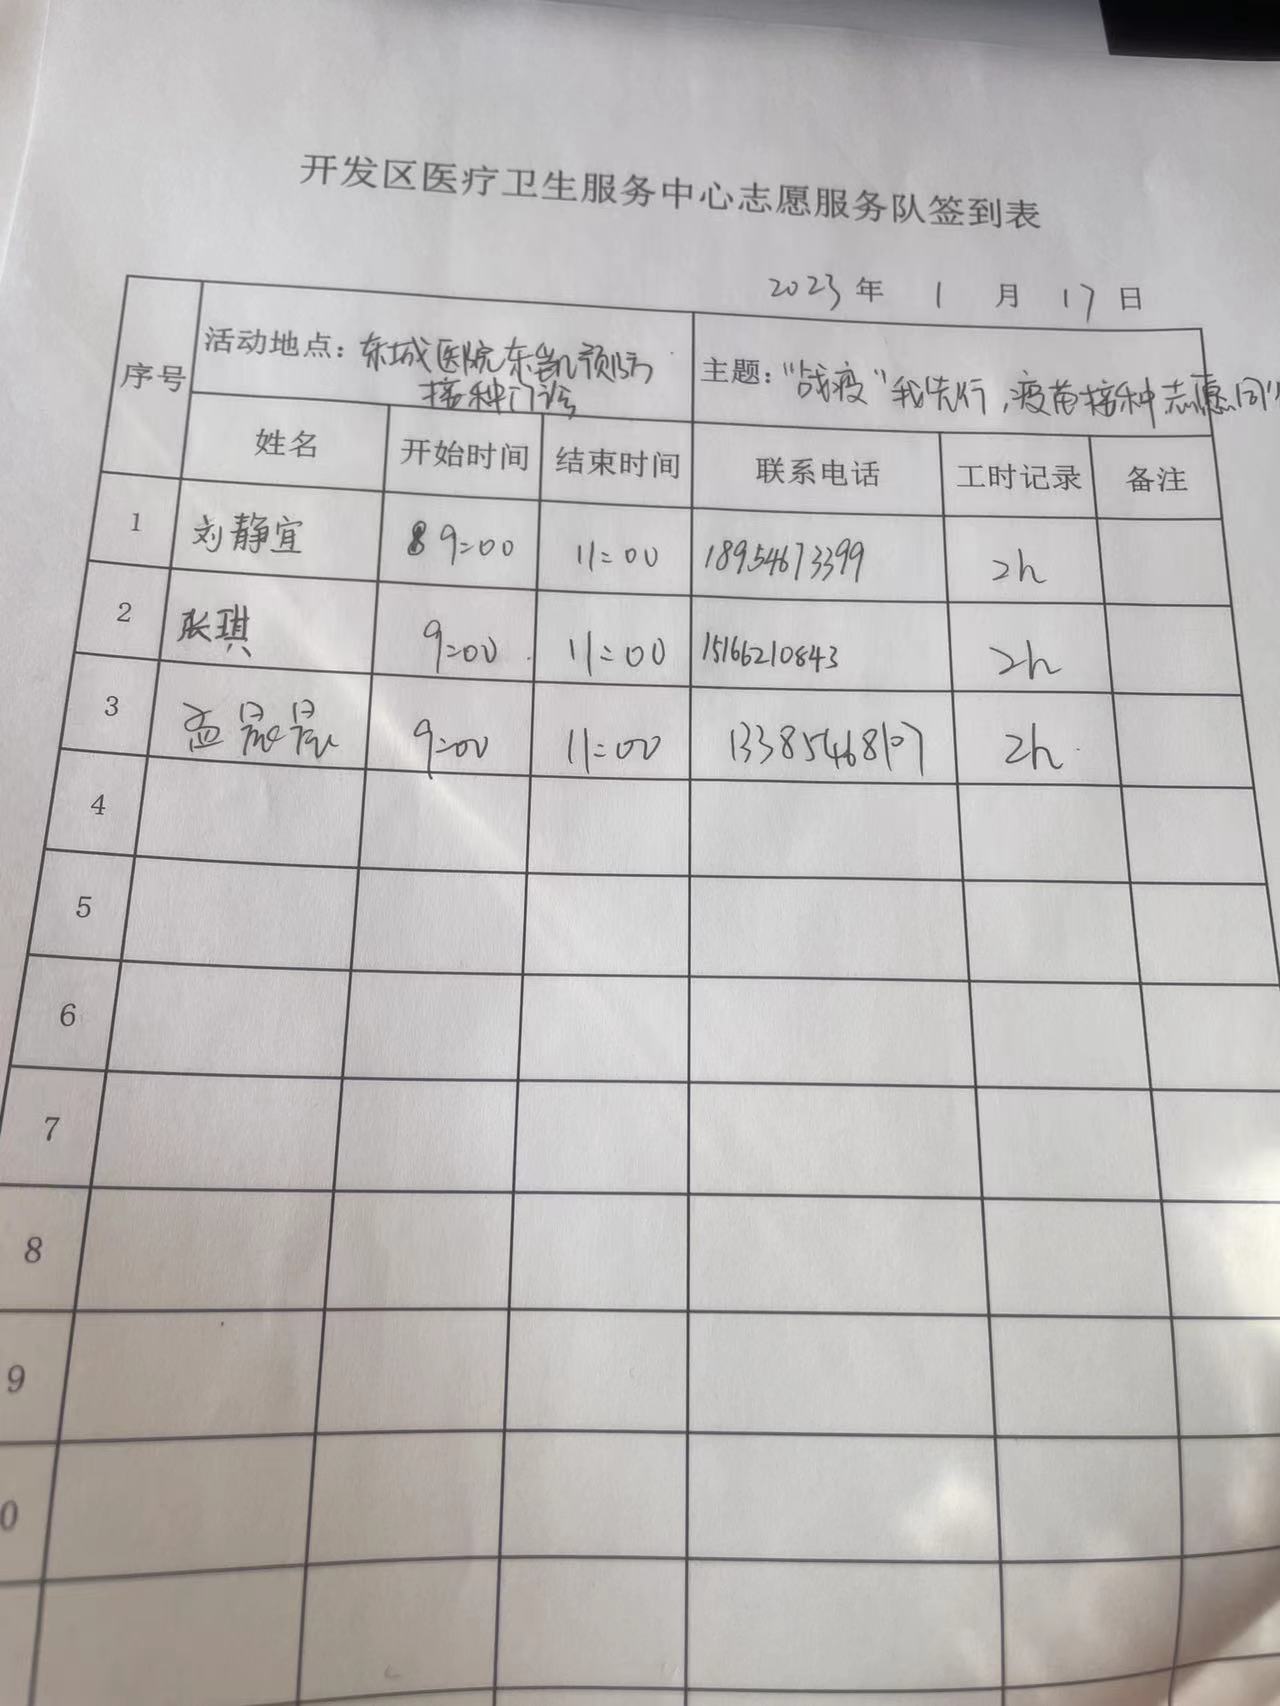 开发区医疗卫生服务中心志愿服务队签到表
2023 年 1 月 17 日
序号
活动地点：东城医院东凯预防
接种门诊
主题："战疫"我先行，疫苗接种志愿同
姓名 开始时间 结束时间 联系电话 工时记录 备注
1 刘静宜 9:00 11:00 18954673399 2h
2 张琪 9:00 11:00 15166210843 2h
3 孟晨晨 9:00 11:00 2h
4
5
6
7
8
9
0